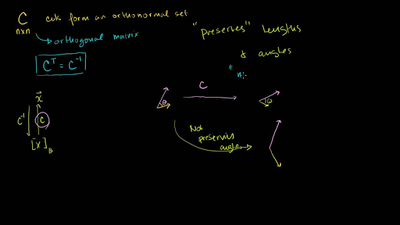 C cols form an orthonormal set
n×n
orthogonal matrix
Cᵀ = C⁻¹
"preserves" lengths
& angles
C
θ
θ
x
C⁻¹
C
[x]B
Not
preserving
angles